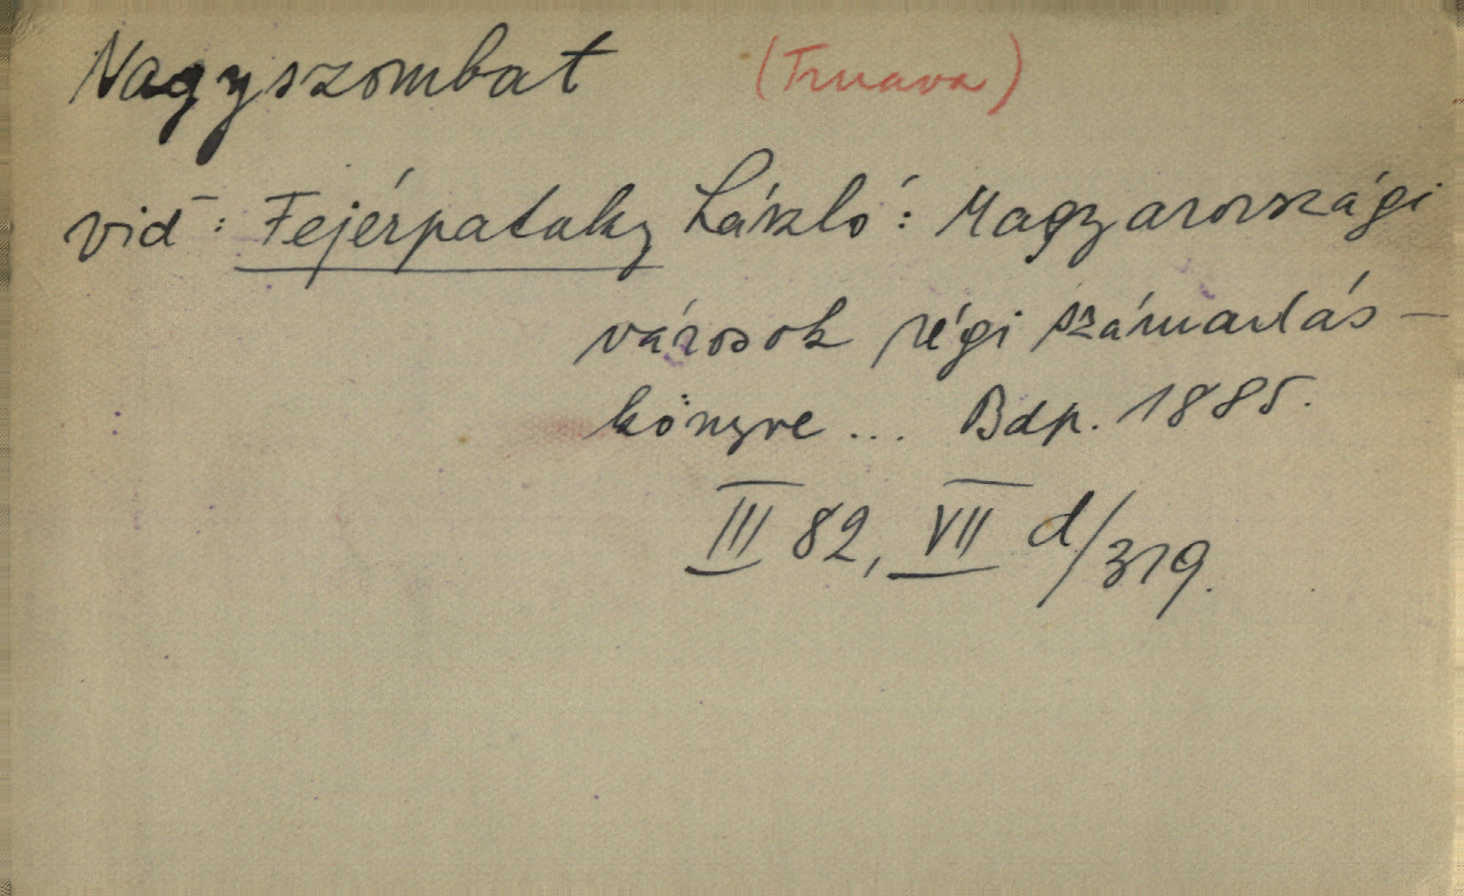 Nagyszombat (Trnava)
vid: Fejérpataky László: Magyarországi
városok régi számadás-
könyve ... Bdp. 1885.
III 82, VII d/319.